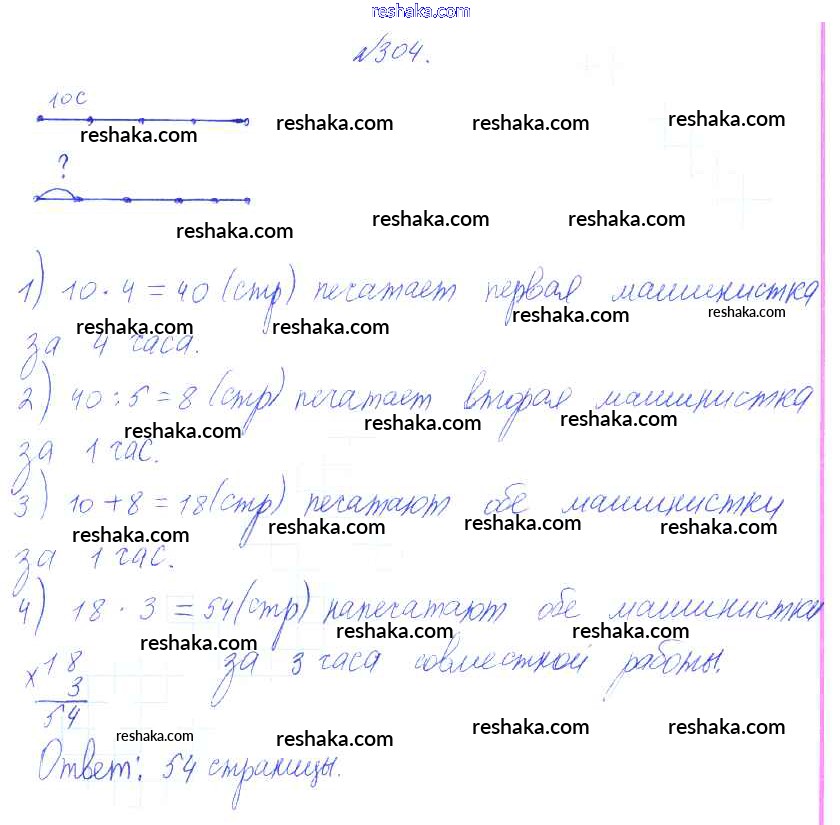 reshaka.com
№304.
10 с
reshaka.com reshaka.com reshaka.com reshaka.com
?
reshaka.com reshaka.com reshaka.com
1) 10 · 4 = 40 (стр) печатает первая машинистка
reshaka.com reshaka.com reshaka.com reshaka.com
за 4 часа.
2) 40 : 5 = 8 (стр) печатает вторая машинистка
reshaka.com reshaka.com reshaka.com
за 1 час.
3) 10 + 8 = 18 (стр) печатают обе машинистки
reshaka.com reshaka.com reshaka.com reshaka.com
за 1 час.
4) 18 · 3 = 54 (стр) напечатают обе машинистки
reshaka.com reshaka.com reshaka.com
×18 за 3 часа совместной работы.
3
54
reshaka.com reshaka.com reshaka.com reshaka.com
Ответ: 54 страницы.